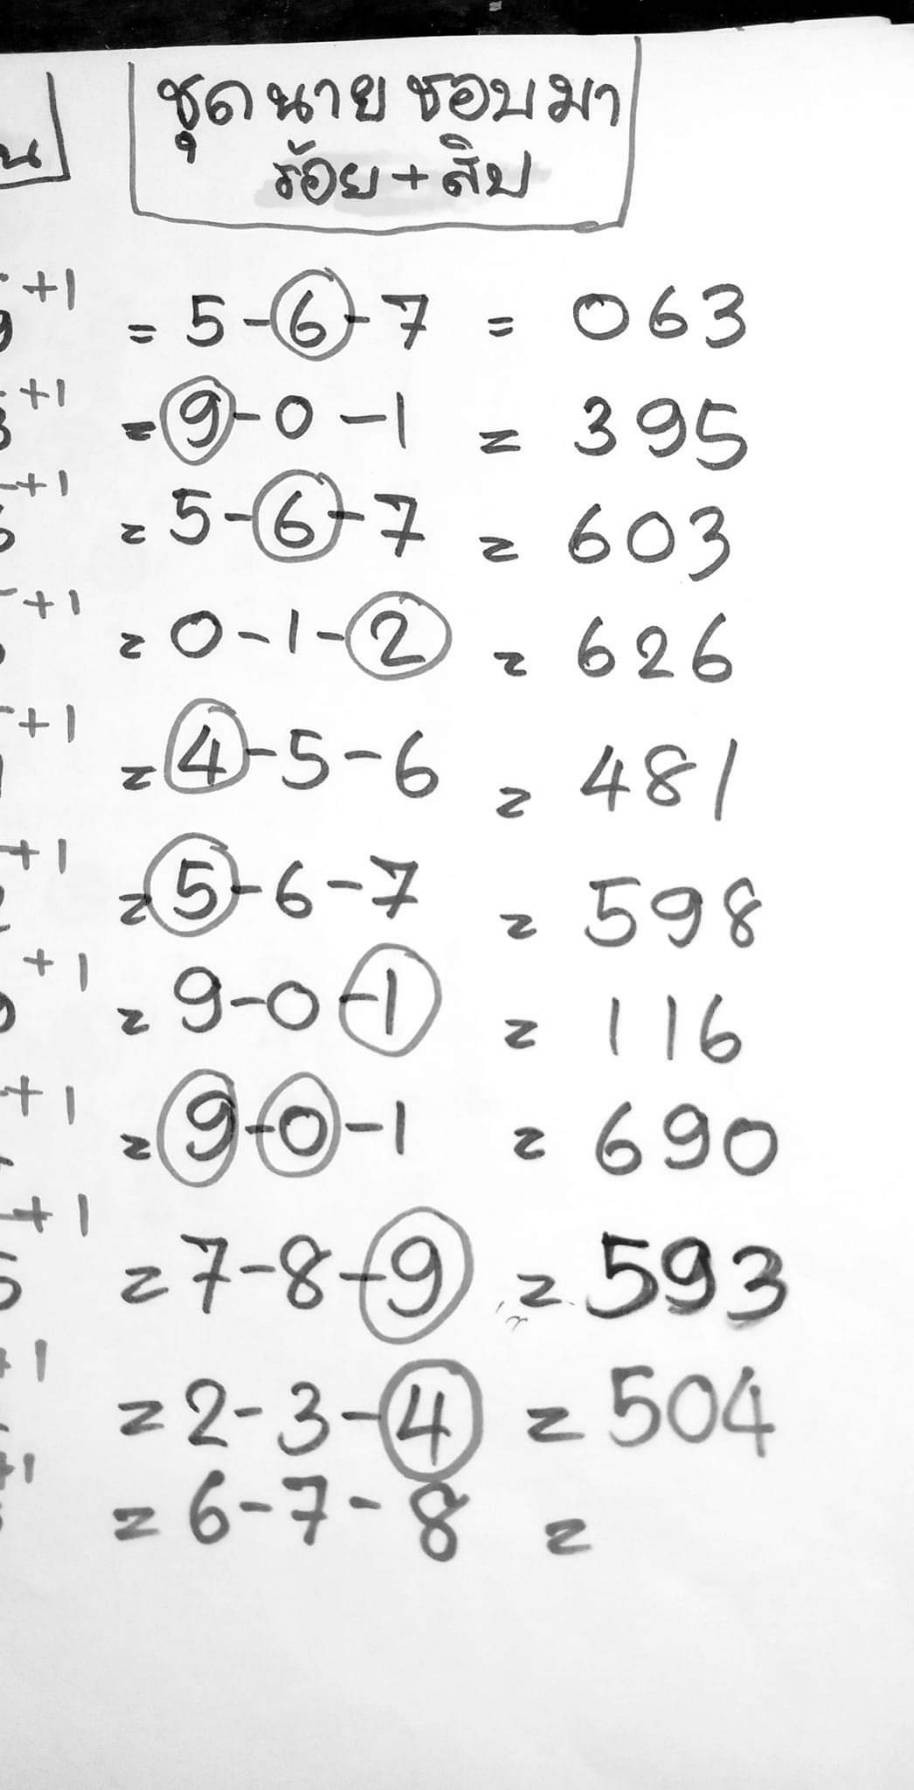 ชุดนาย ชอบมา
ร้อย + สิบ
น
+1 = 5-6-7 = 063
+1 = 9-0-1 = 395
+1 = 5-6-7 = 603
+1 = 0-1-2 = 626
+1 = 4-5-6 = 481
+1 = 5-6-7 = 598
+1 = 9-0-1 = 116
+1 = 9-0-1 = 690
+1 = 7-8-9 = 593
+1 = 2-3-4 = 504
+1 = 6-7-8 =